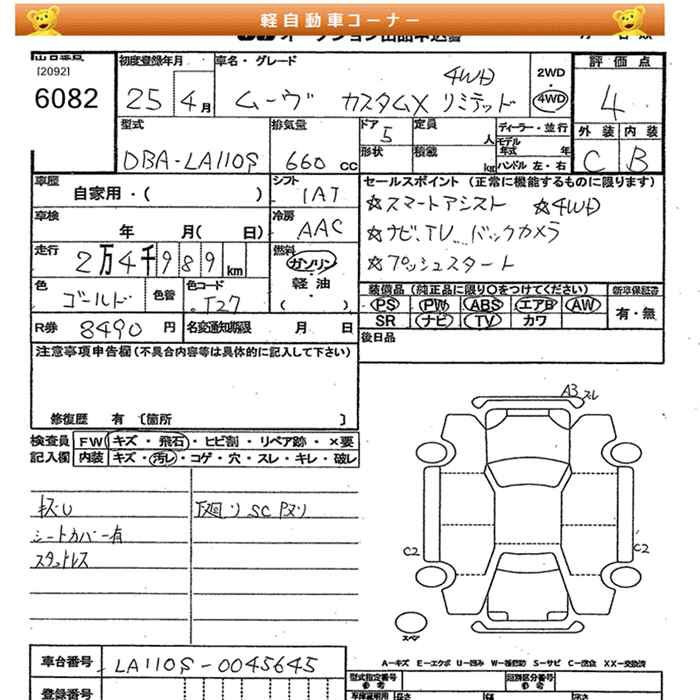 軽自動車コーナー
[2092]
6082
初度登録年月
25 4月
車名・グレード
ムーヴ カスタムX リミテッド 4WD
2WD
・
4WD
評価点
4
外装 内装
C B
型式
DBA-LA110S
排気量
660 cc
ドア
5
形状
定員
人
積載
kg
ディーラー・並行
モデル年式 年
ハンドル 左・右
車歴
自家用・( )
シフト
IAT
車検
年 月( 日)
冷房
AAC
走行
2万4千989km
燃料
ガソリン
・
軽油
・
( )
色
ゴールド
色替
色コード
T27
R券 8490円
名変通知期限 月 日
セールスポイント (正常に機能するものに限ります)
☆スマートアシスト ☆4WD
☆ナビ、TV、バックカメラ
☆プッシュスタート
装備品(純正品に限り○をつけてください)
PS PW ABS エアB AW
SR ナビ TV カワ
新車保証書
有・無
後日品
注意事項申告欄(不具合内容等は具体的に記入して下さい)
修復歴 有 〔箇所 〕
検査員記入欄
FW キズ・飛石・ヒビ割・リペア跡・×要
内装 キズ・汚レ・コゲ・穴・スレ・キレ・破レ
キズU
シートカバー有
スタットレス
下廻り SC Pヌリ
A3 ズレ
C2
C2
スペア
A−キズ E−エクボ U−凹み W−補修跡 S−サビ C−腐食 XX−交換済
車台番号
LA110S-0045645
登録番号
型式指定番号
類別区分番号